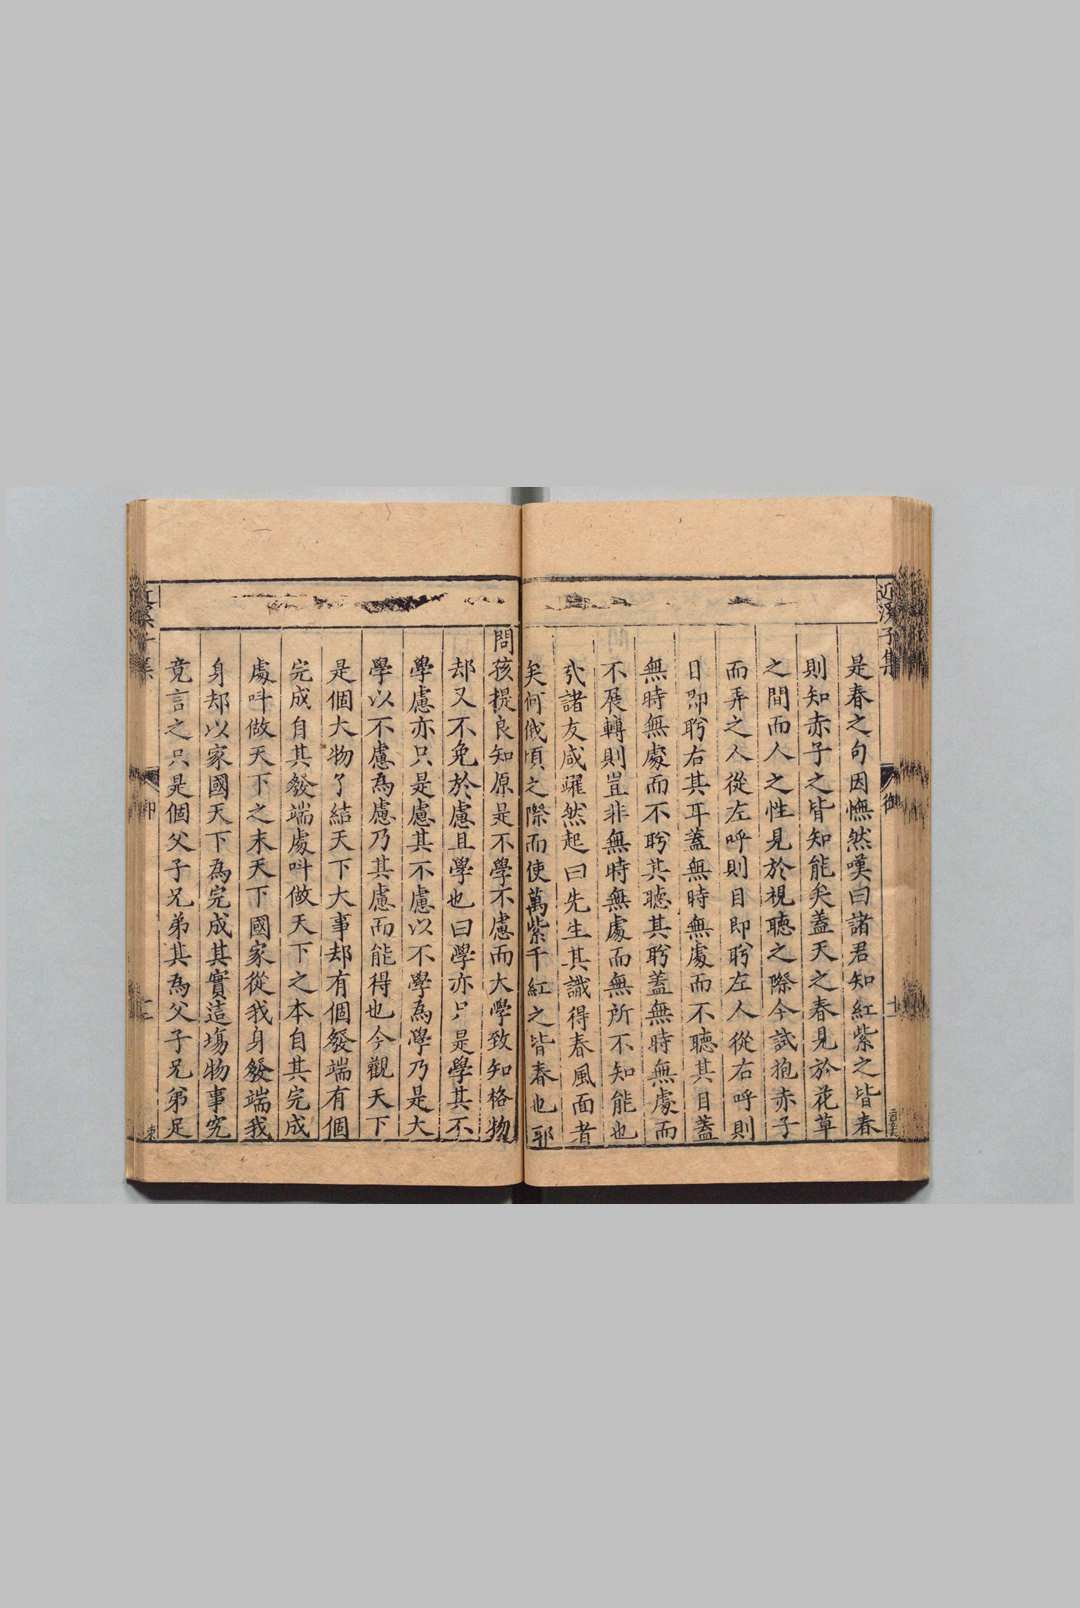 近溪子集
是春之句因憮然嘆曰諸君知紅紫之皆春
則知赤子之皆知能矣蓋天之春見於花草
之間而人之性見於視聽之際今試抱赤子
而弄之人從左呼則目即盻左人從右呼則
目即盻右其耳蓋無時無處而不聽其目蓋
無時無處而不盻其聽其盻蓋無時無處而
不展轉則豈非無時無處而無所不知能也
哉諸友咸躍然起曰先生其識得春風面者
矣何俄頃之際而使萬紫千紅之皆春也耶
問孩提良知原是不學不慮而大學致知格物
却又不免於慮且學也曰學亦只是學其不
學慮亦只是慮其不慮以不學為學乃是大
學以不慮為慮乃其慮而能得也今觀天下
是個大物了結天下大事却有個發端有個
完成自其發端處呌做天下之本自其完成
處呌做天下之末天下國家從我身發端我
身却以家國天下為完成其實這塲物事究
竟言之只是個父子兄弟其為父子兄弟足